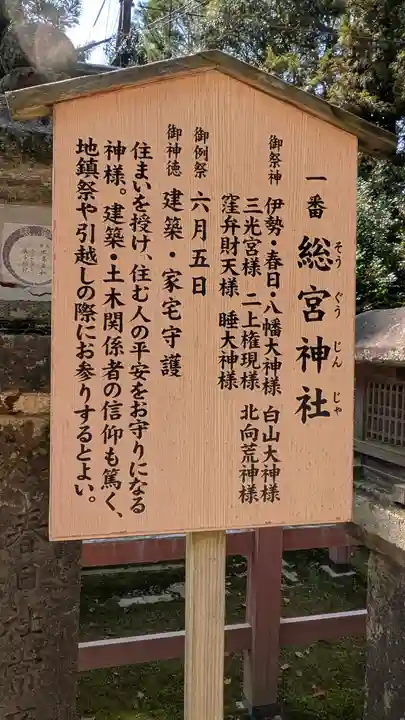 一番 総宮神社
そう ぐう じん じゃ
御祭神 伊勢・春日・八幡大神様 白山大神様
三光宮様 二上権現様 北向荒神様
窪弁財天様 睡大神様
御例祭 六月五日
御神徳 建築・家宅守護
住まいを授け、住む人の平安をお守りになる
神様。建築・土木関係者の信仰も篤く、
地鎮祭や引越しの際にお参りするとよい。
春日社